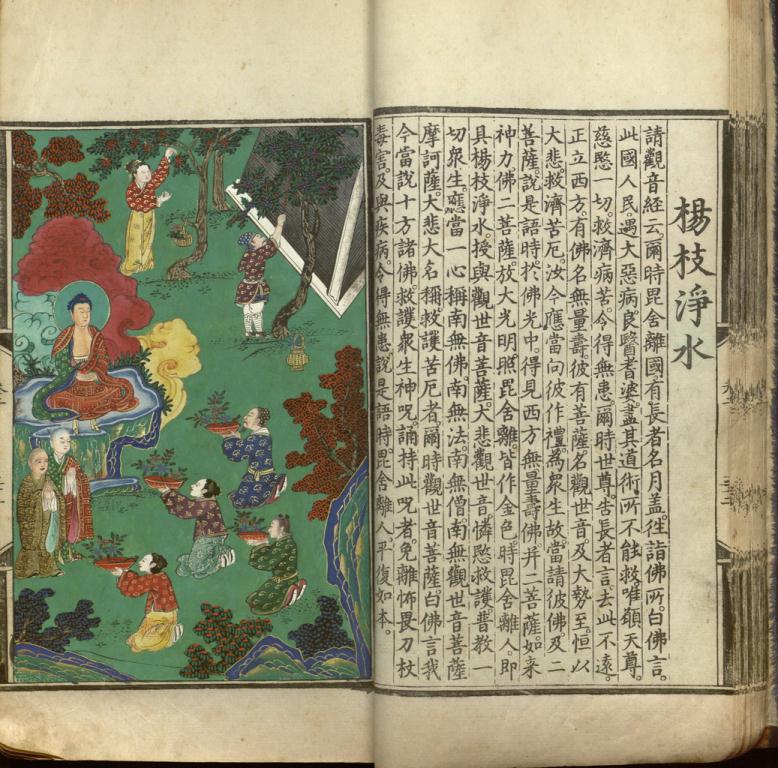 楊枝淨水
請觀音經云。爾時毘舍離國有長者名月盖。往詣佛所。白佛言。
此國人民。遇大惡病。良醫耆婆。盡其道術。所不能救。唯願天尊。
慈愍一切。救濟病苦。令得無患。爾時世尊。告長者言。去此不遠。
正立西方。有佛名無量壽。彼有菩薩。名觀世音及大勢至。恒以
大悲。救濟苦厄。汝今應當向彼作禮。為衆生故。當請彼佛。及二
菩薩。說是語時。於佛光中。得見西方無量壽佛。并二菩薩。如來
神力。佛二菩薩。放大光明。照毘舍離。皆作金色。時毘舍離人。即
具楊枝淨水。授與觀世音菩薩。大悲觀世音。憐愍救護。普教一
切衆生。應當一心稱南無佛。南無法。南無僧。南無觀世音菩薩
摩訶薩。大悲大名稱。救護苦厄者。爾時觀世音菩薩。白佛言。我
今當說十方諸佛。救護衆生神呪。誦持此呪者。免離怖畏。刀杖
毒害。及與疾病。令得無患。說是語時。毘舍離人。平復如本。